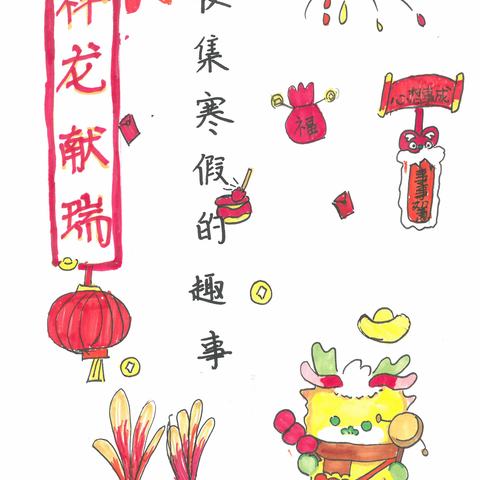 祥龙献瑞
集寒假的趣事
福
心想事成
事事